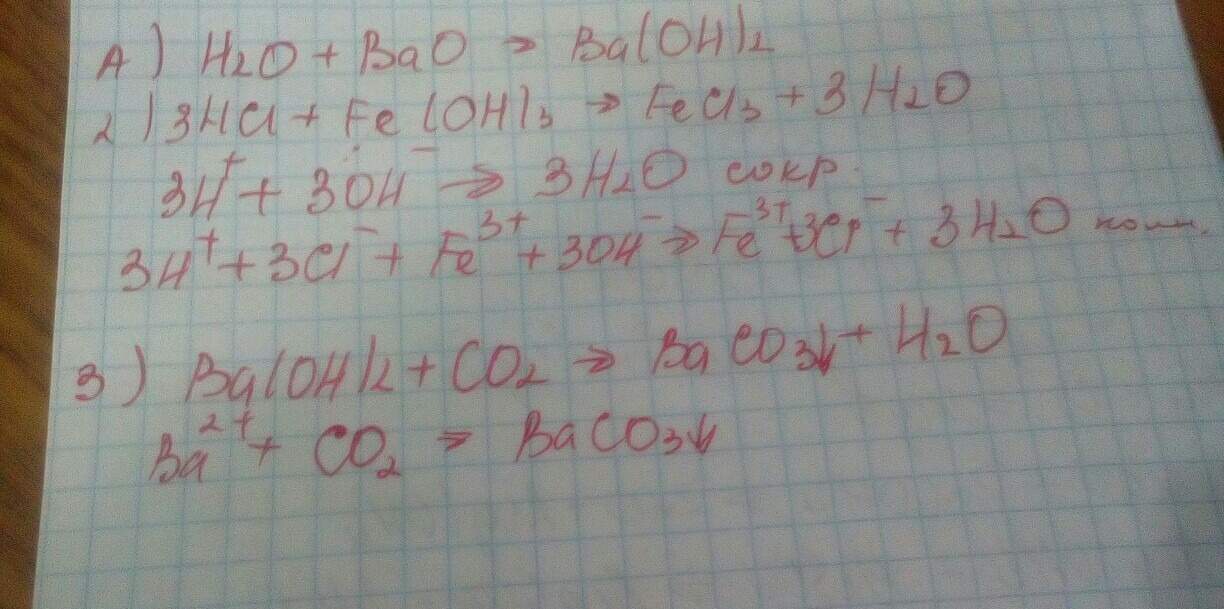 А) H₂O + BaO → Ba(OH)₂
2) 3HCl + Fe(OH)₃ → FeCl₃ + 3H₂O
3H⁺ + 3OH⁻ → 3H₂O сокр.
3H⁺ + 3Cl⁻ + Fe³⁺ + 3OH⁻ → Fe³⁺ + 3Cl⁻ + 3H₂O полн.
3) Ba(OH)₂ + CO₂ → BaCO₃↓ + H₂O
Ba²⁺ + CO₂ → BaCO₃↓